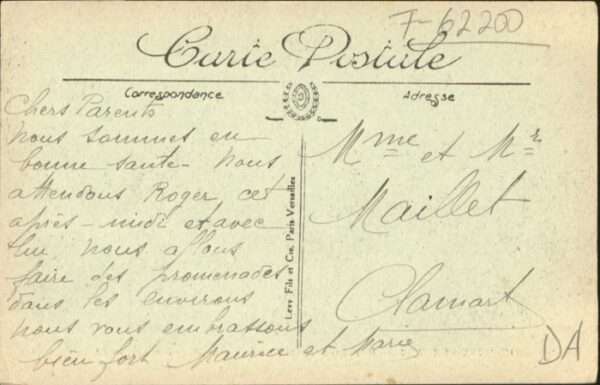 F-62200
Carte Postale
Correspondance
Adresse
Chers Parents
nous sommes en
bonne santé - nous
attendons Roger cet
après-midi et avec
lui nous allons
faire des promenades
dans les environs
nous vous embrassons
bien fort Maurice et Marie
Levy Fils et Cie, Paris Versailles
Mme et Mr
Maillet
Clamart
DA